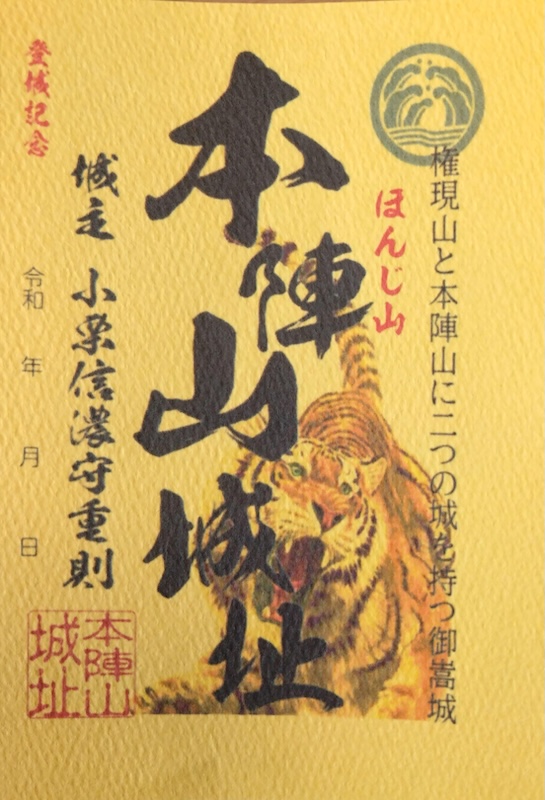 権現山と本陣山に二つの城を持つ御嵩城
ほんじ山
本陣山城址
城主 小栗信濃守重則
登城記念
令和 年 月 日
本陣山
城址